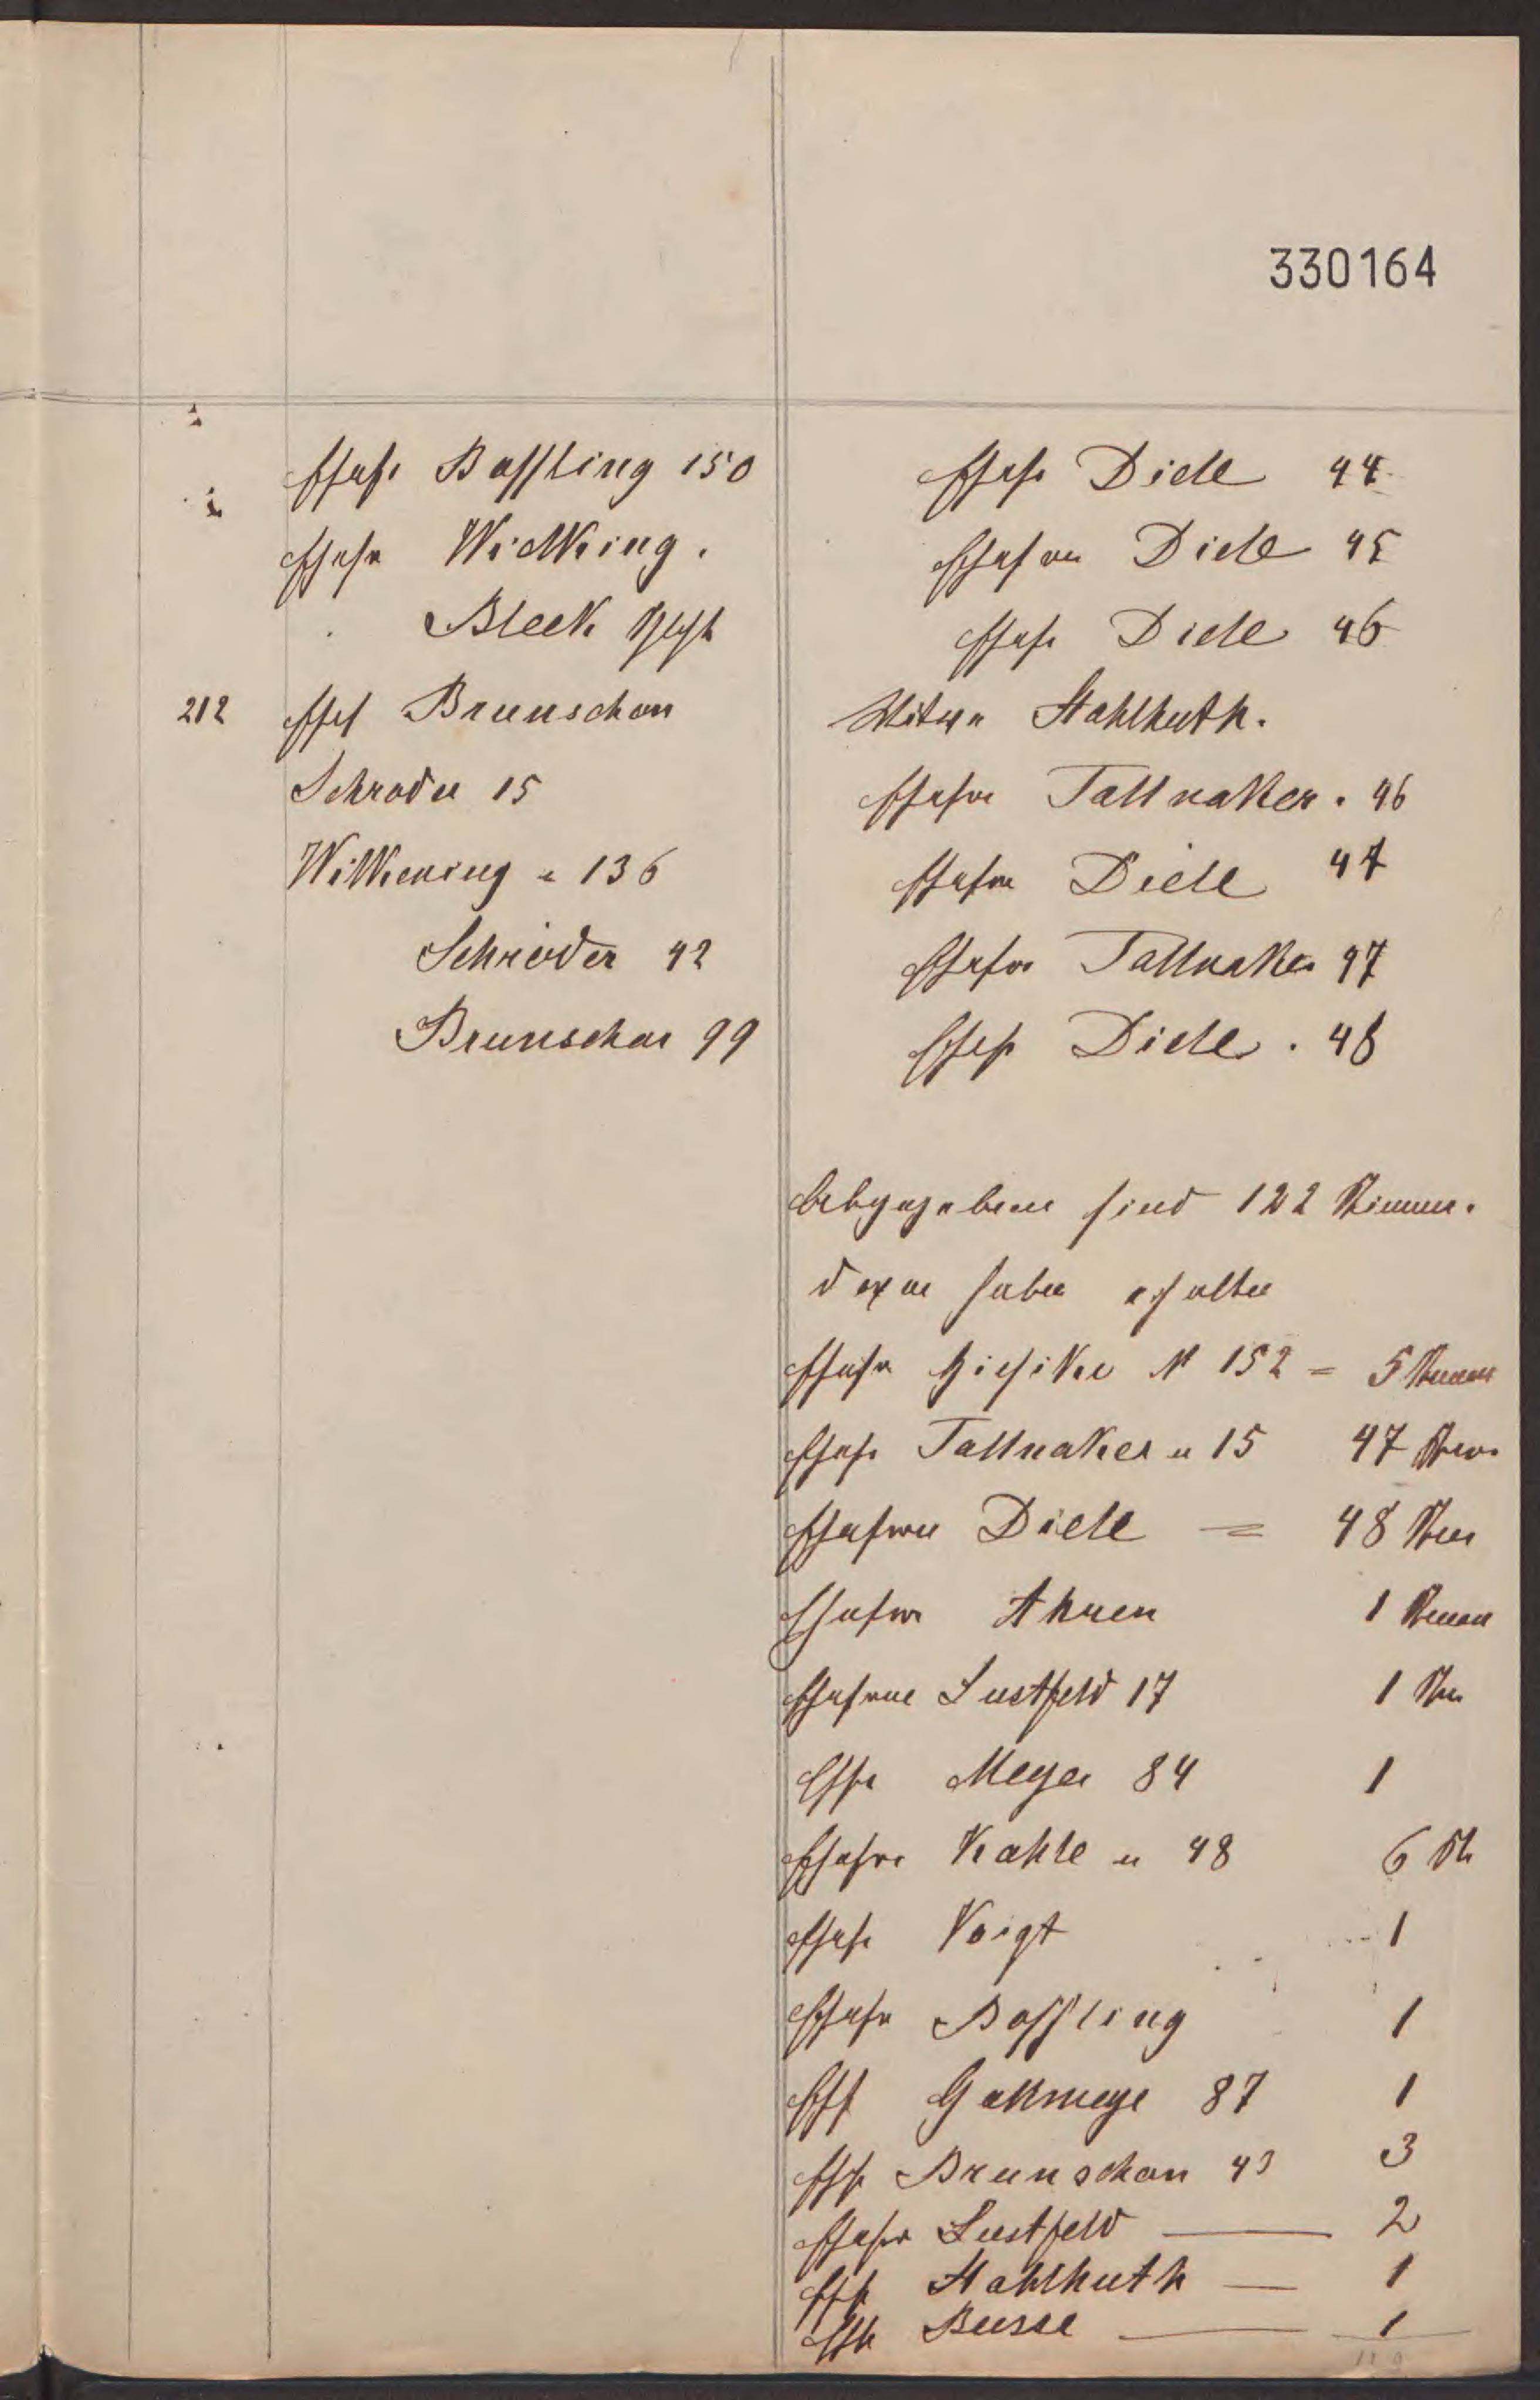 330164
Ehefr Bassling 150
Ehefr Wickking.
Bleek
212 Ehef Brunschon
Schroder 15
Wilkening " 136
Schröder 42
Brunschon 99
Ehefr Diele 44
Ehefrau Diele 45
Ehefr Diele 46
Witwe Stahlhuth.
Ehefrau Tallnaker. 46
Ehefrau Diele 47
Ehefrau Tallnaker 47
Ehefr Diele. 48
Abgegeben sind 122 Stimmen.
davon haben erhalten
Ehefr Giesike N 152 = 5 Stimmen
Ehefr Tallnaker " 15 47 Stim
Ehefrau Diele = 48 Stim
Ehefrau Ahnen 1 Stimm
Ehefrau Lustfeld 17 1 Stim
Ehfr Meyer 84 1
Ehefrau Kahle " 48 6 St
Ehefr Voigt 1
Ehefr Bassling 1
Ehf Gakmeye 87 1
Ehfr Brunschon 43 3
Ehefr Lustfeld — 2
Ehfr Stahlhuth — 1
Ehfr Busse — 1